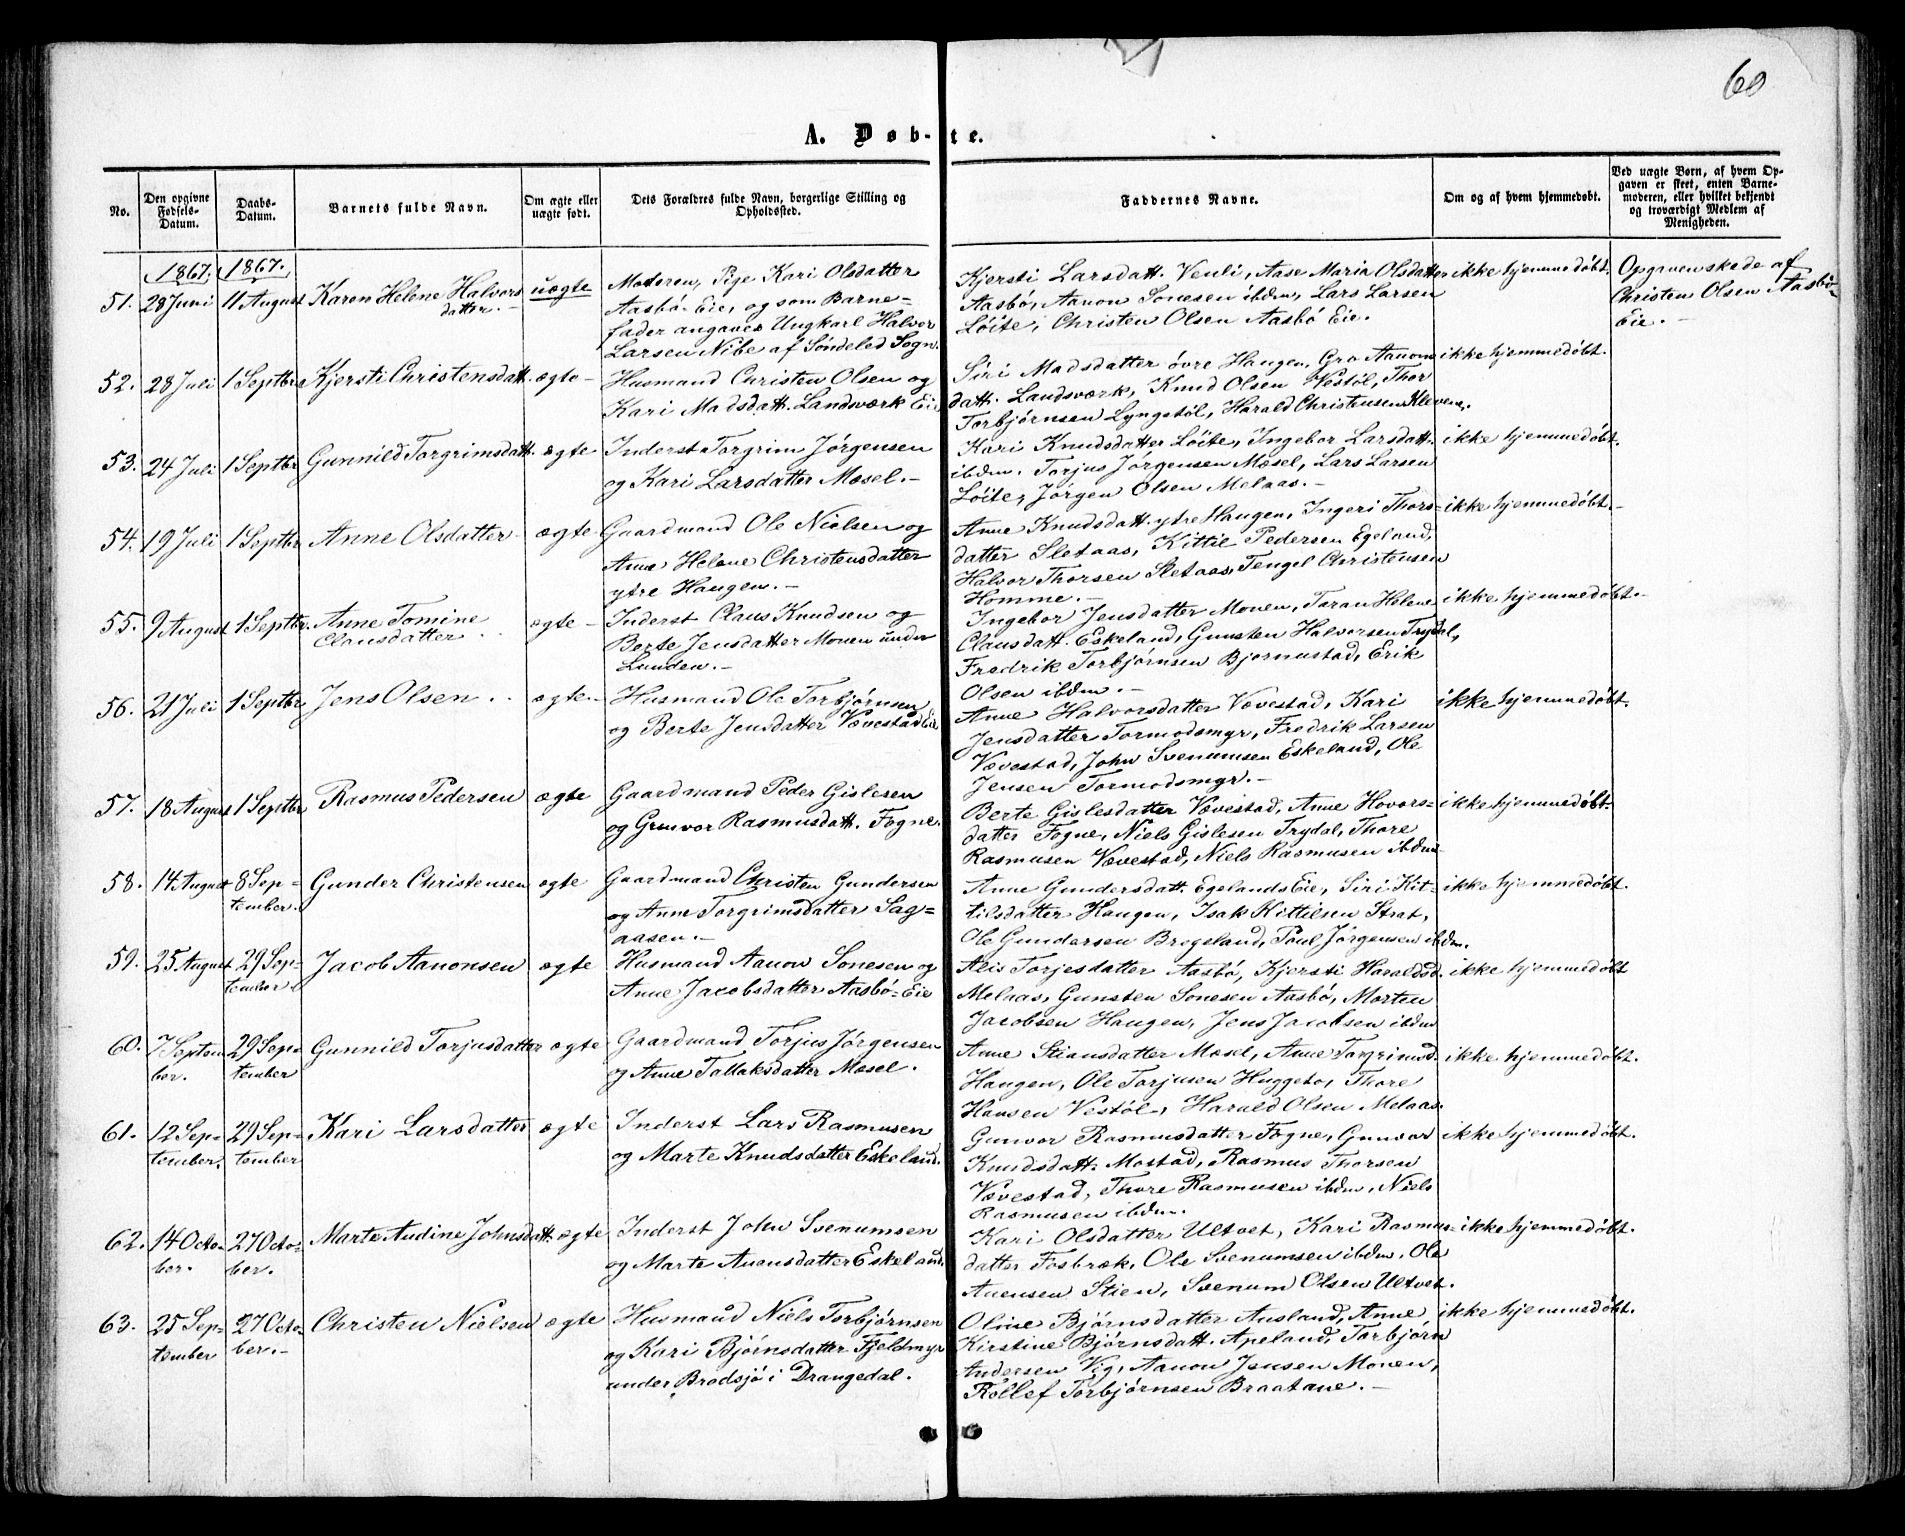 60
A. Døbte.
No.
Den opgivne Fødsels-Datum.
Daabs-Datum.
Barnets fulde Navn.
Om ægte eller uægte født.
Dets Forældres fulde Navn, borgerlige Stilling og Opholdssted.
Faddernes Navne.
Om og af hvem hjemmedøbt.
Ved uægte Børn, af hvem Opgaven er skeet, enten Barnemoderen, eller hvilket bekjendt og troværdigt Medlem af Menigheden.
1867. 1867.
51. 28 Juni 11 August Karen Helene Halvors
datter. uægte
Moderen, Pige Kari Olsdatter
Aasbö Eie, og som Barne-
fader angaves Ungkarl Halvor
Larsen Nibe af Söndeled Sogn.
Kjersti Larsdatt. Venli, Aase Maria Olsdatter
Aasbö, Aanon Sonesen ibdm, Lars Larsen
Löite, Christen Olsen Aasbö Eie.
ikke hjemmedöbt.
Opgaven skede af
Christen Olsen Aasbö
Eie.-
52. 28 Juli 1 Septbr Kjersti Christensdatt. ægte-
Husmand Christen Olsen og
Kari Madsdatt. Landsværk Eie
Siri Madsdatter övre Haugen, Gro Aanons
datt. Landsværk, Knud Olsen Vestöl, Thor
Torbjörnsen Lyngstöl, Harald Christensen Klevene.
ikke hjemmedöbt.
53. 24 Juli 1 Septbr Gunnild Torgrimsdatt. ægte
Inderst Torgrim Jörgensen
og Kari Larsdatter Mæsel.-
Kari Knudsdatter Löite, Ingebor Larsdatt.
ibdm. Torjus Jörgensen Mæsel, Lars Larsen
Löite, Jörgen Olsen Melaas.-
ikke hjemmedöbt.
54. 19 Juli 1 Septbr Anne Olsdatter ægte
Gaardmand Ole Nielsen og
Anne Helene Christensdatter
ytre Haugen.-
Anne Knudsdatt. ytre Haugen, Ingeri Thors-
datter Sletaas, Kittil Pedersen Egeland,
Halvor Thorsen Sletaas, Tengel Christensen
Homme.-
ikke hjemmedöbt.-
55. 9 August 1 Septbr. Anne Tomine
Clausdatter ægte-
Inderst Claus Knudsen og
Berte Jensdatter Monen under
Lunden.-
Ingebor Jensdatter Monen, Taran Helene
Clausdatt. Eskeland, Gunsten Halvorsen Trydal,
Fredrik Torbjörnsen Bjornustad, Erik
Olsen ibdm.-
ikke hjemmedöbt.-
56. 21 Juli 1 Septbr Jens Olsen ægte-
Husmand Ole Torbjörnsen
og Berte Jensdatter Vævestad Eie
Anne Halvorsdatter Vævestad, Kari
Jensdatter Tormodsmyr, Fredrik Larsen
Vævestad, John Svenumsen Eskeland, Ole
Jensen Tormodsmyr.-
ikke hjemmedöbt.
57. 18 August 1 Septbr Rasmus Pedersen ægte
Gaardmand Peder Gislesen
og Gunvor Rasmusdatt. Fogne.
Berte Gislesdatter Vævestad, Anne Hovors-
datter Fogne, Niels Gislesen Trydal, Thore
Rasmusen Vævestad, Niels Rasmusen ibdm
ikke hjemmedöbt.
58. 14 August 8 Sep-
tember. Gunder Christensen ægte
Gaardmand Christen Gundersen
og Anne Torgrimsdatter Sag-
aasen.-
Anne Gundersdatt. Egelands Eie, Siri Kit-
tilsdatter Haugen, Isak Kittilsen Strat,
Ole Gundersen Bregeland, Poul Jörgensen ibdm.
ikke hjemmedöbt.
59. 25 August 29 Sep-
tember. Jacob Aanonsen ægte
Husmand Aanon Sonesen og
Anne Jacobsdatter Aasbö-Eie
Alis Torjesdatter Aasbö, Kjersti Haraldsd.
Melaas, Gunsten Sonesen Aasbö, Morten
Jacobsen Haugen, Jens Jacobsen ibdm
ikke hjemmedöbt
60. 7 Septem
ber. 29 Sep-
tember Gunnild Torjusdatter ægte
Gaardmand Torjus Jörgensen
og Anne Tallaksdatter Mæsel.
Anne Stiansdatter Mæsel, Anne Torgrimsd.
Haugen, Ole Torjusen Huggeto, Thore
Hansen Vestöl, Harald Olsen Melaas.
ikke hjemmedöbt.
61. 12 Sep-
tember. 29 Sep-
tember Kari Larsdatter ægte
Inderst Lars Rasmusen
og Marte Knudsdatter Eskeland.
Gunvor Rasmusdatter Fogne, Gunvor
Knudsdatt. Mostad, Rasmus Thorsen
Vævestad, Thore Rasmusen ibdm, Niels
Rasmusen ibdm.
ikke hjemmedöbt.
62. 14 Octo-
ber. 27 Octo-
ber. Marte Andine Johnsdatt. ægte
Inderst John Svenumsen
og Marte Auensdatter Eskeland.
Kari Olsdatter Ultvet, Kari Rasmus-
datter Fosbræk, Ole Svenumsen ibdm, Ole
Auensen Stien, Svenum Olsen Ultvet.
ikke hjemmedöbt.
63. 25 Sep-
tember 27 Octo-
ber.- Christen Nielsen ægte
Husmand Niels Torbjörnsen
og Kari Björnsdatter Fjeldmyr
under Brødsjö i Drangedal.
Oline Björnsdatter Ausland, Anne
Kirstine Björnsdatt. Apeland, Torbjörn
Andersen Vig, Aanon Jensen Monen,
Rollef Torbjörnsen Braatane.-
ikke hjemmedöbt.